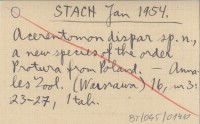 STACH Jan 1954.
Acerentomon dispar sp. n.,
a new species of the order
Protura from Poland. Anna-
les Zool. (Warszawa) 16, nr 3:
23-27, 1 tab.